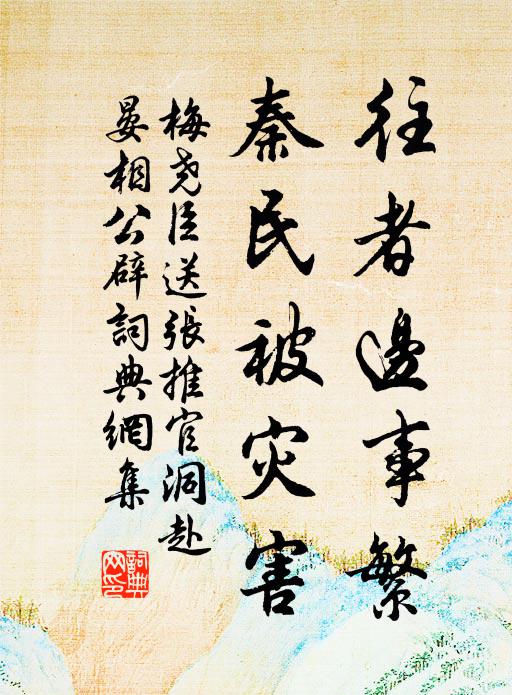 往者邊事繁
秦民被灾害
梅尧臣送張推官洞赴
晏相公辟詞典網集
詞典网印